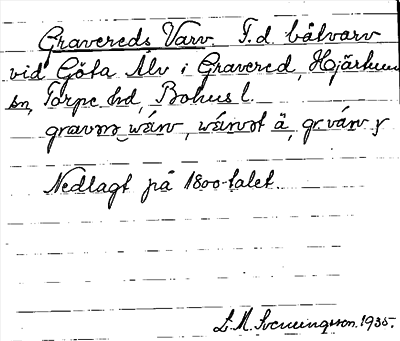 Gravereds Varv. F.d. båtvarv
vid Göta Älv i Gravered, Hjärtum
sn, Torpe hd, Bohus l.
Nedlagt på 1800-talet.
L. M. Svenningsson. 1935.